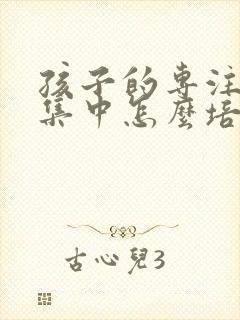 孩子的專注
集中怎麼培
古心兒3